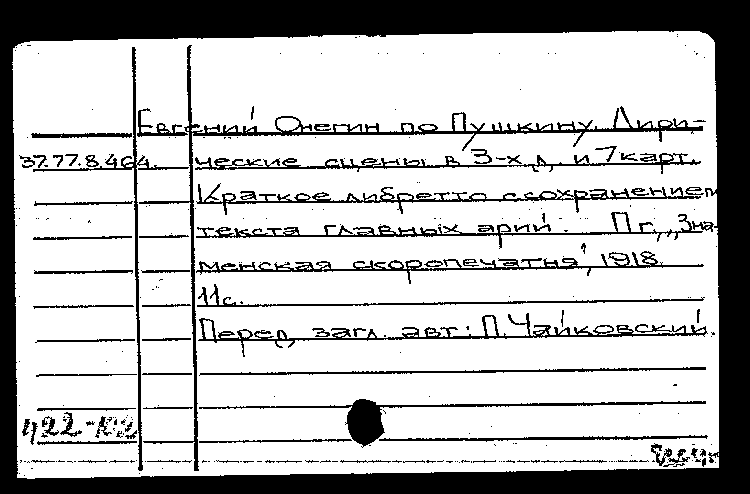 Евгений Онегин по Пушкину. Лири-
37.77.8.464. ческие сцены в 3-х д. и 7 карт.
Краткое либретто с сохранением
текста главных арий. Пг., „Зна-
менская скоропечатня", 1918.
11с.
Перед загл. авт: П. Чайковский.
422-102